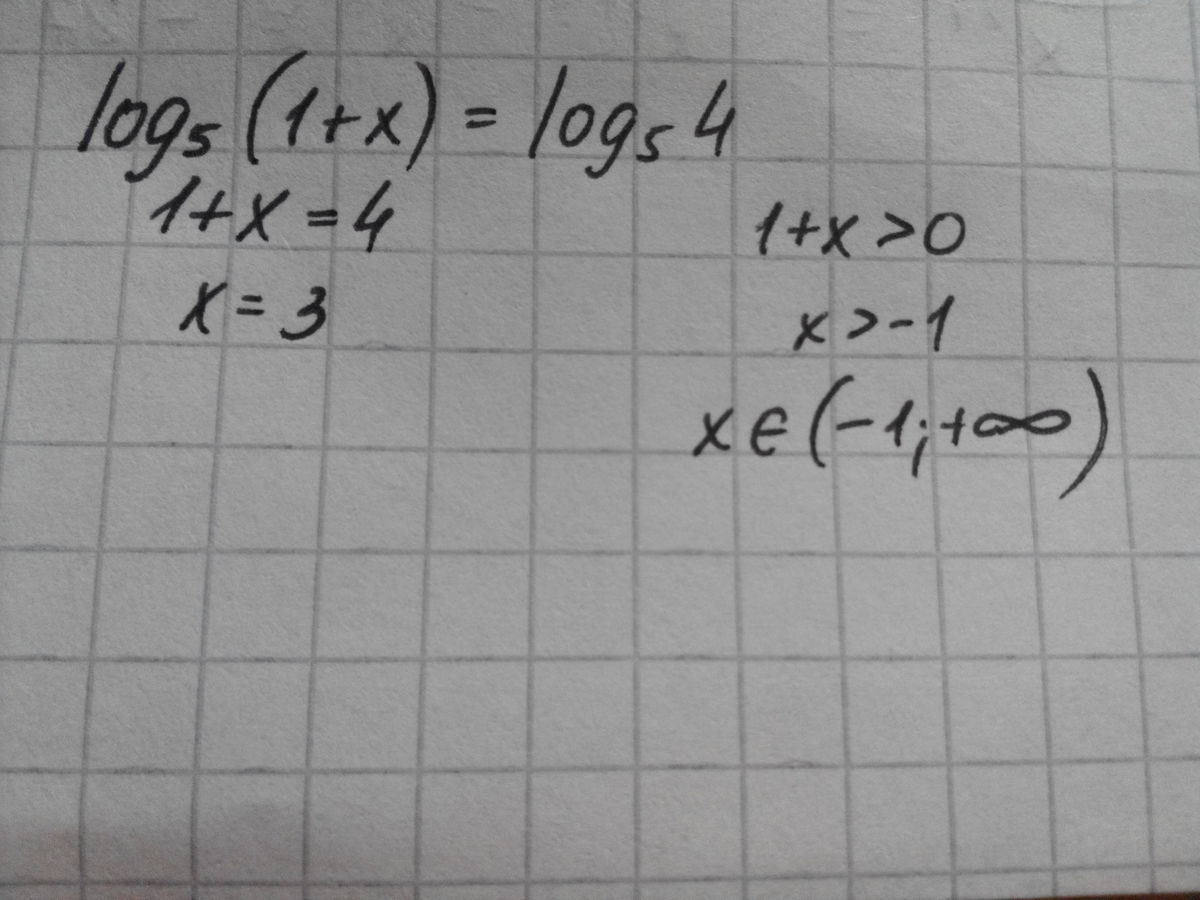 log₅(1+x) = log₅4
1+x=4
x=3
1+x>0
x>-1
x∈(-1;+∞)